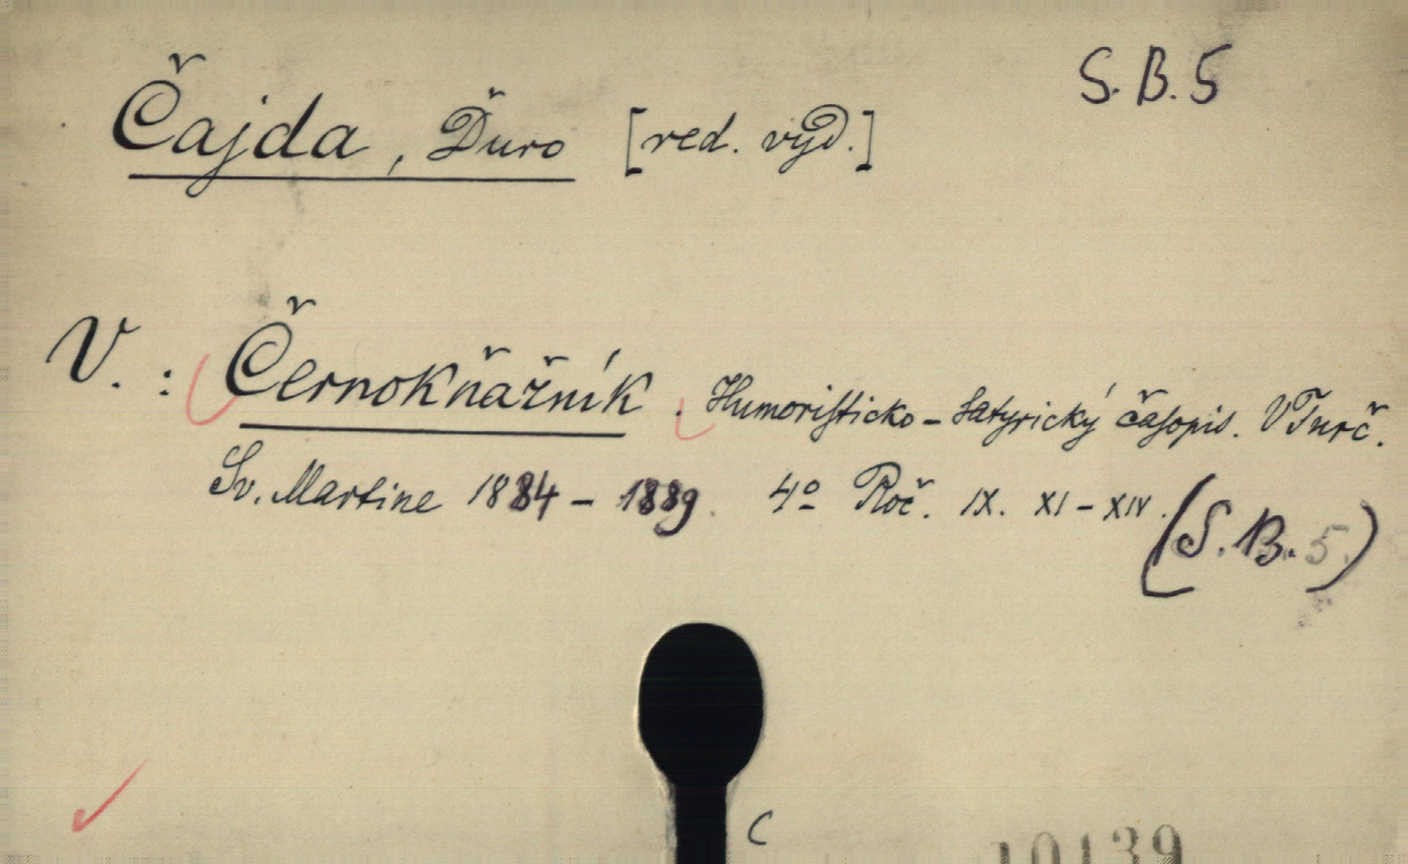 S.B.5
Čajda, Ďuro [red. vyd.]
V. : Černokňažník. Humoristicko-satyrický časopis. V Turč.
Sv. Martine 1884 - 1889. 4º Roč. IX. XI-XIV.
(S.B.5.)
C
10139